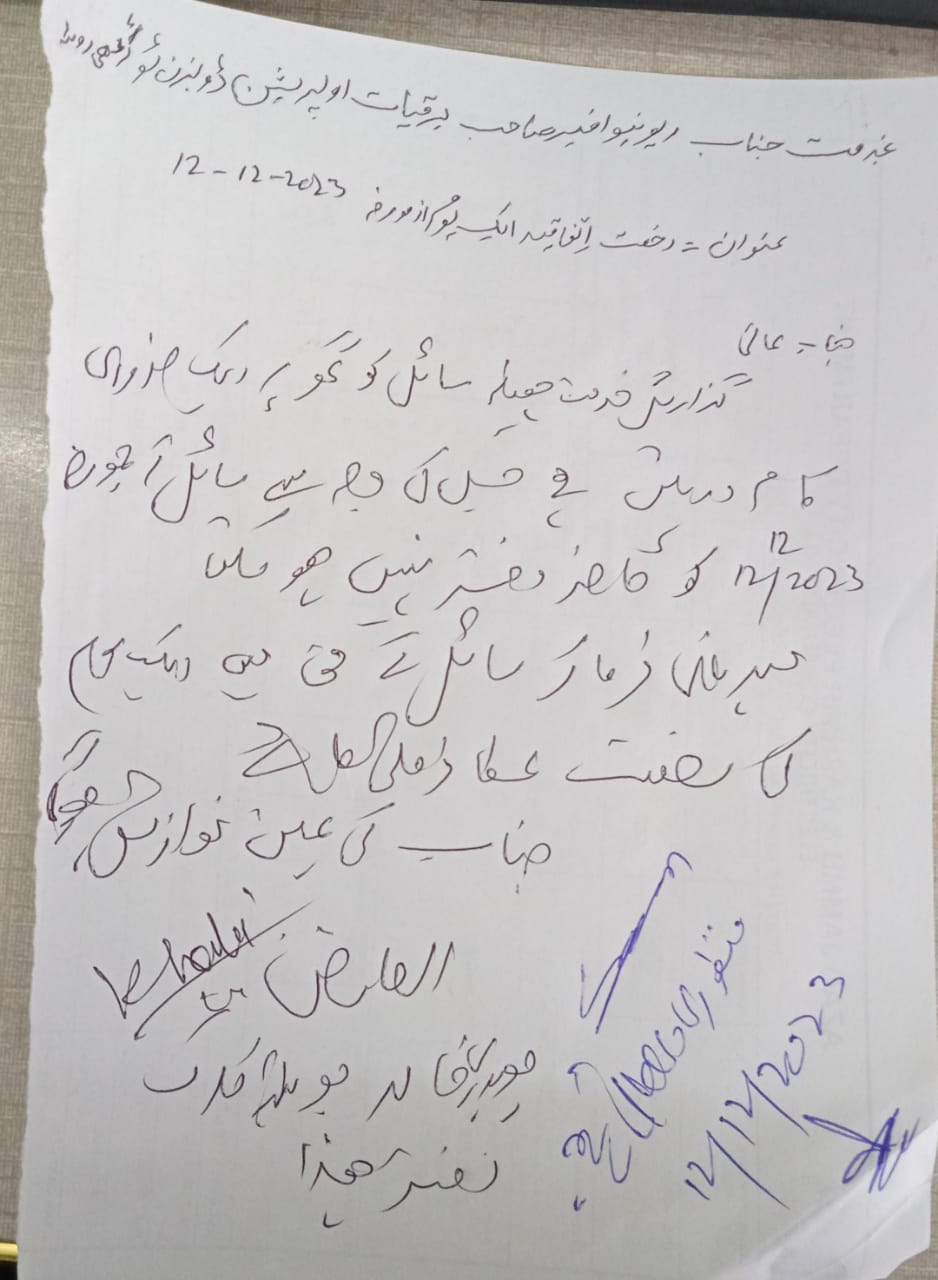 بخدمت جناب ریونیو آفیسر صاحب برقیات اوپریشن ڈویژن
عنوان = رخصت اتفاقیہ ایک یوم از مورخہ 12-12-2023
جناب عالی
گزارش خدمت ہے سائل کو گھر پر ایک ضروری
کام درپیش ہے جس کی وجہ سے سائل آج مورخہ
12/12/2023 کو حاضر دفتر نہیں ہو سکتا
مہربانی فرما کر سائل کے حق میں ایک یوم
کی رخصت عطا فرمائی جائے
جناب کی عین نوازش ہوگی
العارض Khalid
خالد کلرک
دفتر ھذا
منظوری
12/12/2023